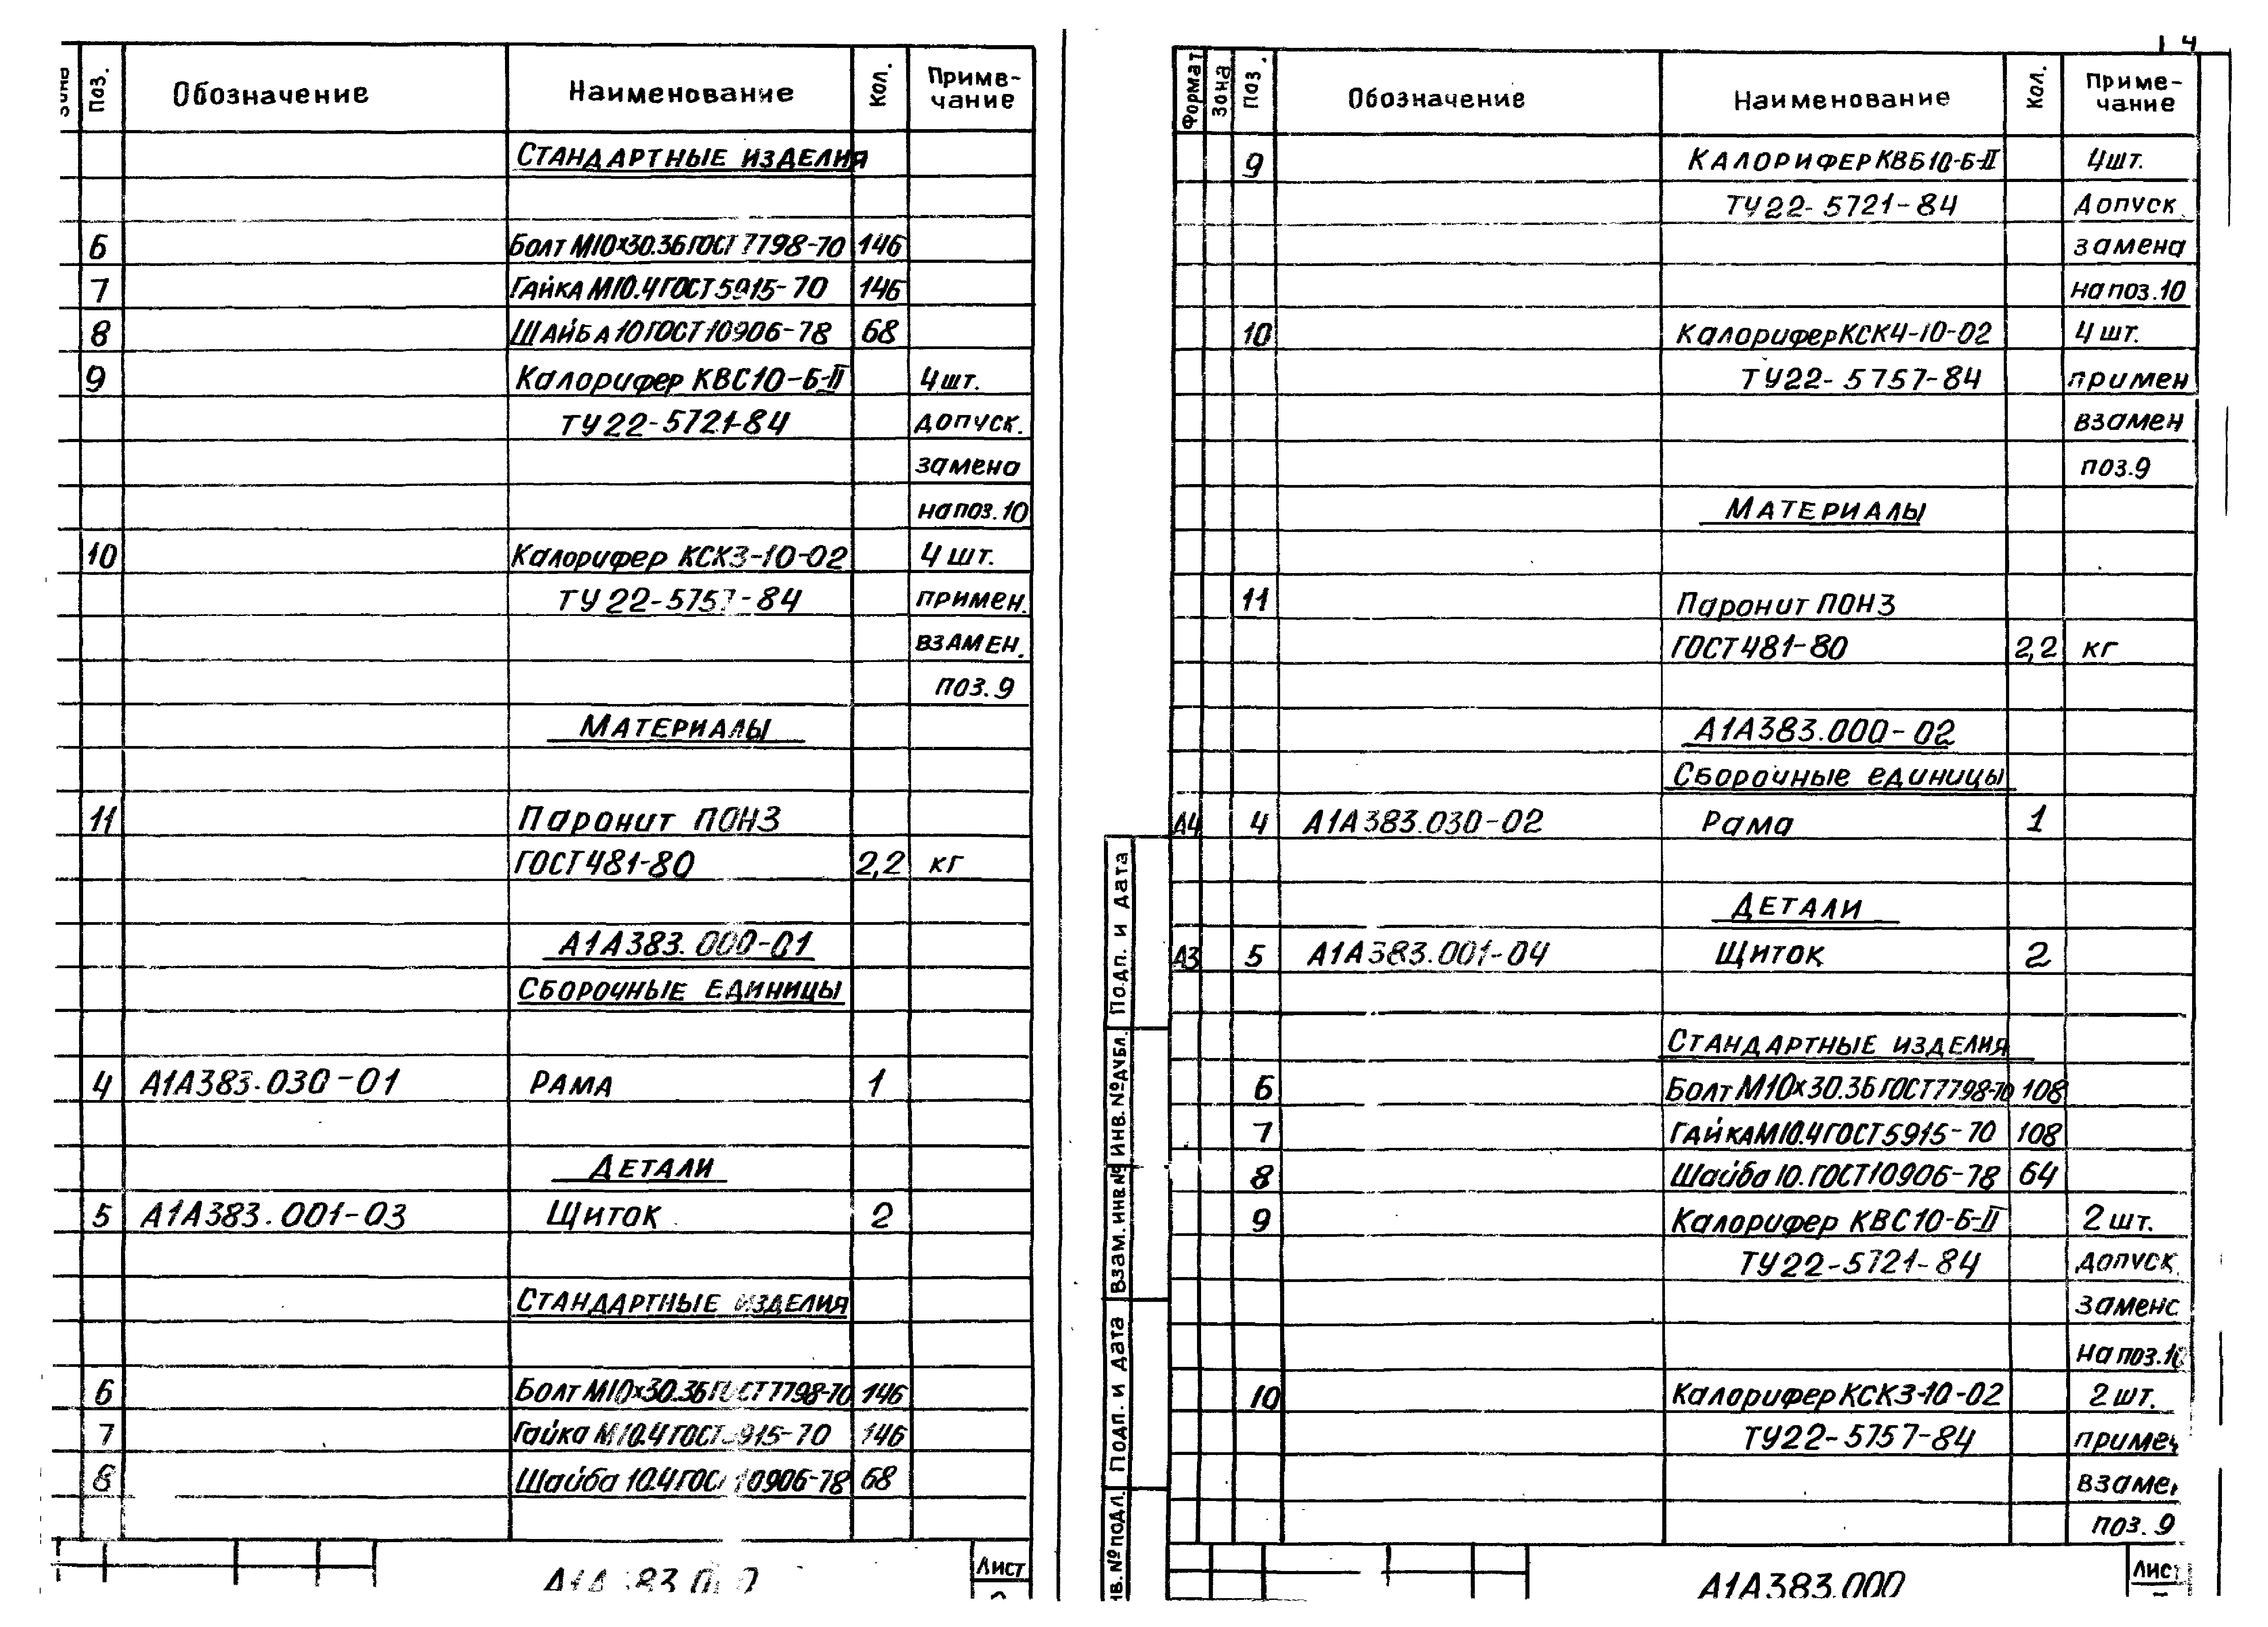 Поз. Обозначение Наименование Кол. Приме-
чание
СТАНДАРТНЫЕ ИЗДЕЛИЯ
6 Болт М10х30.36 ГОСТ 7798-70 146
7 Гайка М10.4 ГОСТ 5915-70 146
8 Шайба 10 ГОСТ 10906-78 68
9 Калорифер КВС10-Б-II 4 шт.
ТУ 22-5721-84 допуск.
замена
на поз. 10
10 Калорифер КСК3-10-02 4 шт.
ТУ 22-5757-84 примен.
взамен.
поз. 9
МАТЕРИАЛЫ
11 Паронит ПОН3
ГОСТ 481-80 2,2 кг
А1А383.000-01
СБОРОЧНЫЕ ЕДИНИЦЫ
4 А1А383.030-01 РАМА 1
ДЕТАЛИ
5 А1А383.001-03 Щиток 2
СТАНДАРТНЫЕ ИЗДЕЛИЯ
6 Болт М10х30.36 ГОСТ 7798-70 146
7 Гайка М10.4 ГОСТ 5915-70 146
8 Шайба 10.4 ГОСТ 10906-78 68
А1А383.000
Лист
4
Формат Зона Поз. Обозначение Наименование Кол. Приме-
чание
9 КАЛОРИФЕР КВБ10-Б-II 4 шт.
ТУ 22-5721-84 Допуск
замена
на поз. 10
10 Калорифер КСК4-10-02 4 шт.
ТУ 22-5757-84 примен
взамен
поз. 9
МАТЕРИАЛЫ
11 Паронит ПОН3
ГОСТ 481-80 2,2 кг
А1А383.000-02
Сборочные единицы
А4 4 А1А383.030-02 Рама 1
ДЕТАЛИ
А3 5 А1А383.001-04 Щиток 2
СТАНДАРТНЫЕ ИЗДЕЛИЯ
6 Болт М10х30.36 ГОСТ 7798-70 108
7 Гайка М10.4 ГОСТ 5915-70 108
8 Шайба 10. ГОСТ 10906-78 64
9 Калорифер КВС10-Б-II 2 шт.
ТУ 22-5721-84 допуск
замена
на поз. 10
10 Калорифер КСК3-10-02 2 шт.
ТУ 22-5757-84 примен
взамен
поз. 9
А1А383.000
Лист
Подп. и дата
Инв. № дубл.
Взам. инв. №
Подп. и дата
Инв. № подл.